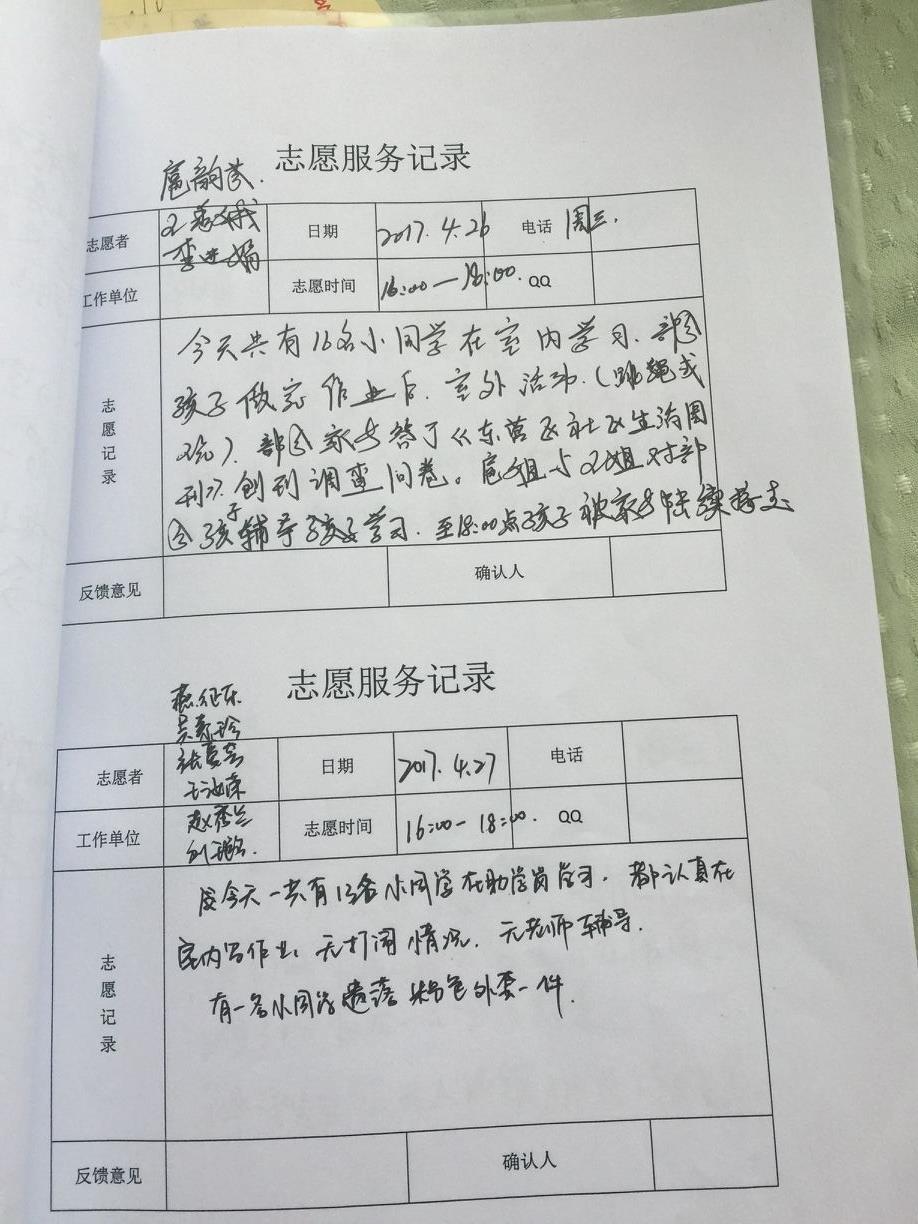 志愿服务记录
扈韵芬.
志愿者 日期 2017.4.26 电话 周三.
工作单位 志愿时间 16:00—18:00. QQ
志愿记录
今天共有16名小同学在室内学习.部分
孩子做完作业后.室外活动.(跳绳或
玩).部分家长答了《东营区社区生活周
刊》创刊调查问卷。扈姐与 姐对部
分孩子辅导孩子学习.至18:00点孩子被家长陆续接走
反馈意见 确认人
志愿服务记录
志愿者 日期 2017.4.27 电话
赵秀兰
工作单位 志愿时间 16:00-18:00. QQ
志愿记录
今天一共有13名小同学在助学岗学习.都认真在
室内写作业.无打闹情况.无老师辅导.
有一名小同学遗落粉色外套一件.
反馈意见 确认人